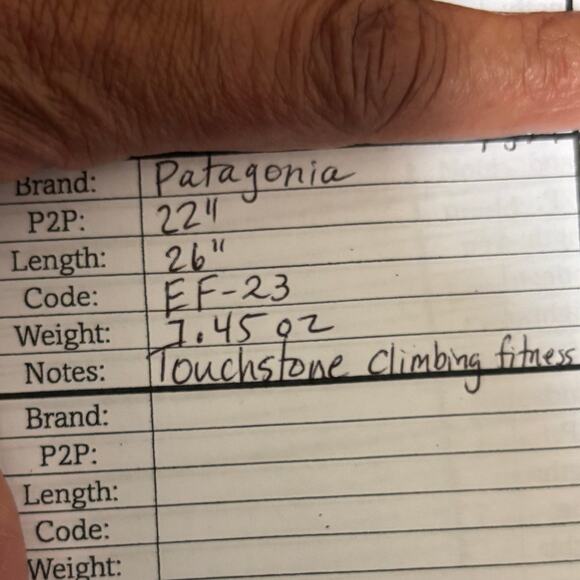 Brand: Patagonia
P2P: 22"
Length: 26"
Code: EF-23
Weight: 7.45 oz
Notes: Touchstone Climbing fitness
Brand:
P2P:
Length:
Code:
Weight: